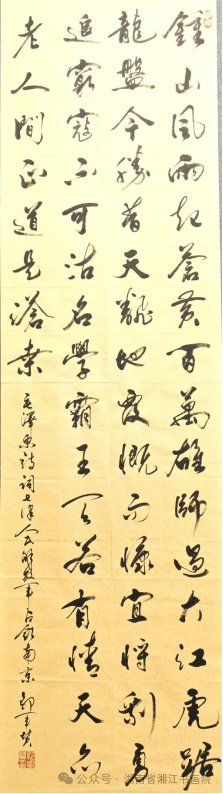 鍾山風雨起蒼黃百萬雄師過大江虎踞
龍盤今勝昔天翻地覆慨而慷宜將剩勇
追窮寇不可沽名學霸王天若有情天亦
老人間正道是滄桑
毛澤東詩詞七律人民解放軍占領南京
公众号 · 湖南省湘江书画院